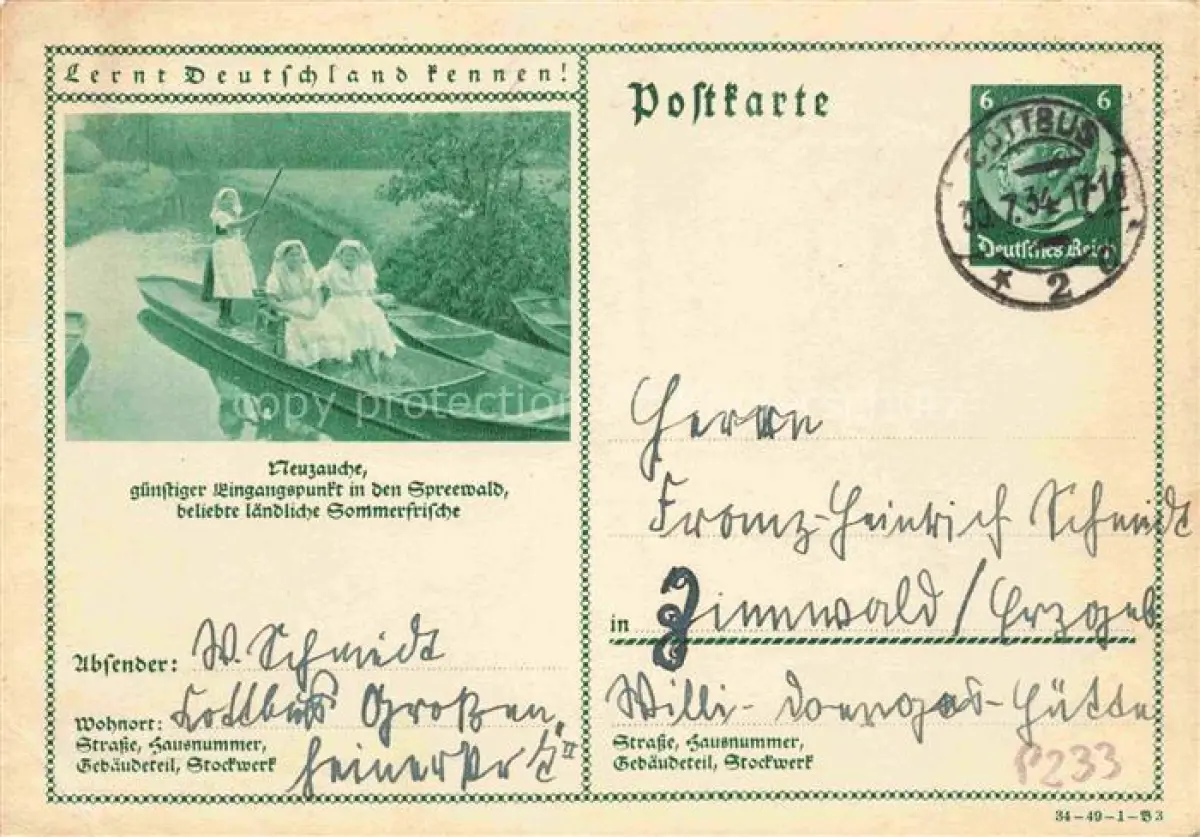 Lernt Deutschland kennen!
Neuzauche,
günstiger Eingangspunkt in den Spreewald,
beliebte ländliche Sommerfrische
Absender: W. Schmidt
Wohnort: Cottbus Großen
Straße, Hausnummer,
Gebäudeteil, Stockwerk
Postkarte
6 6
Deutsches Reich
COTTBUS
30.7.34. 17-18
* 2
Herrn
Franz-Heinrich Schmidt
in Zinnwald/Erzgeb
Willi- -Hütte
Straße, Hausnummer,
Gebäudeteil, Stockwerk
P233
34-49-1-B3
copy protection